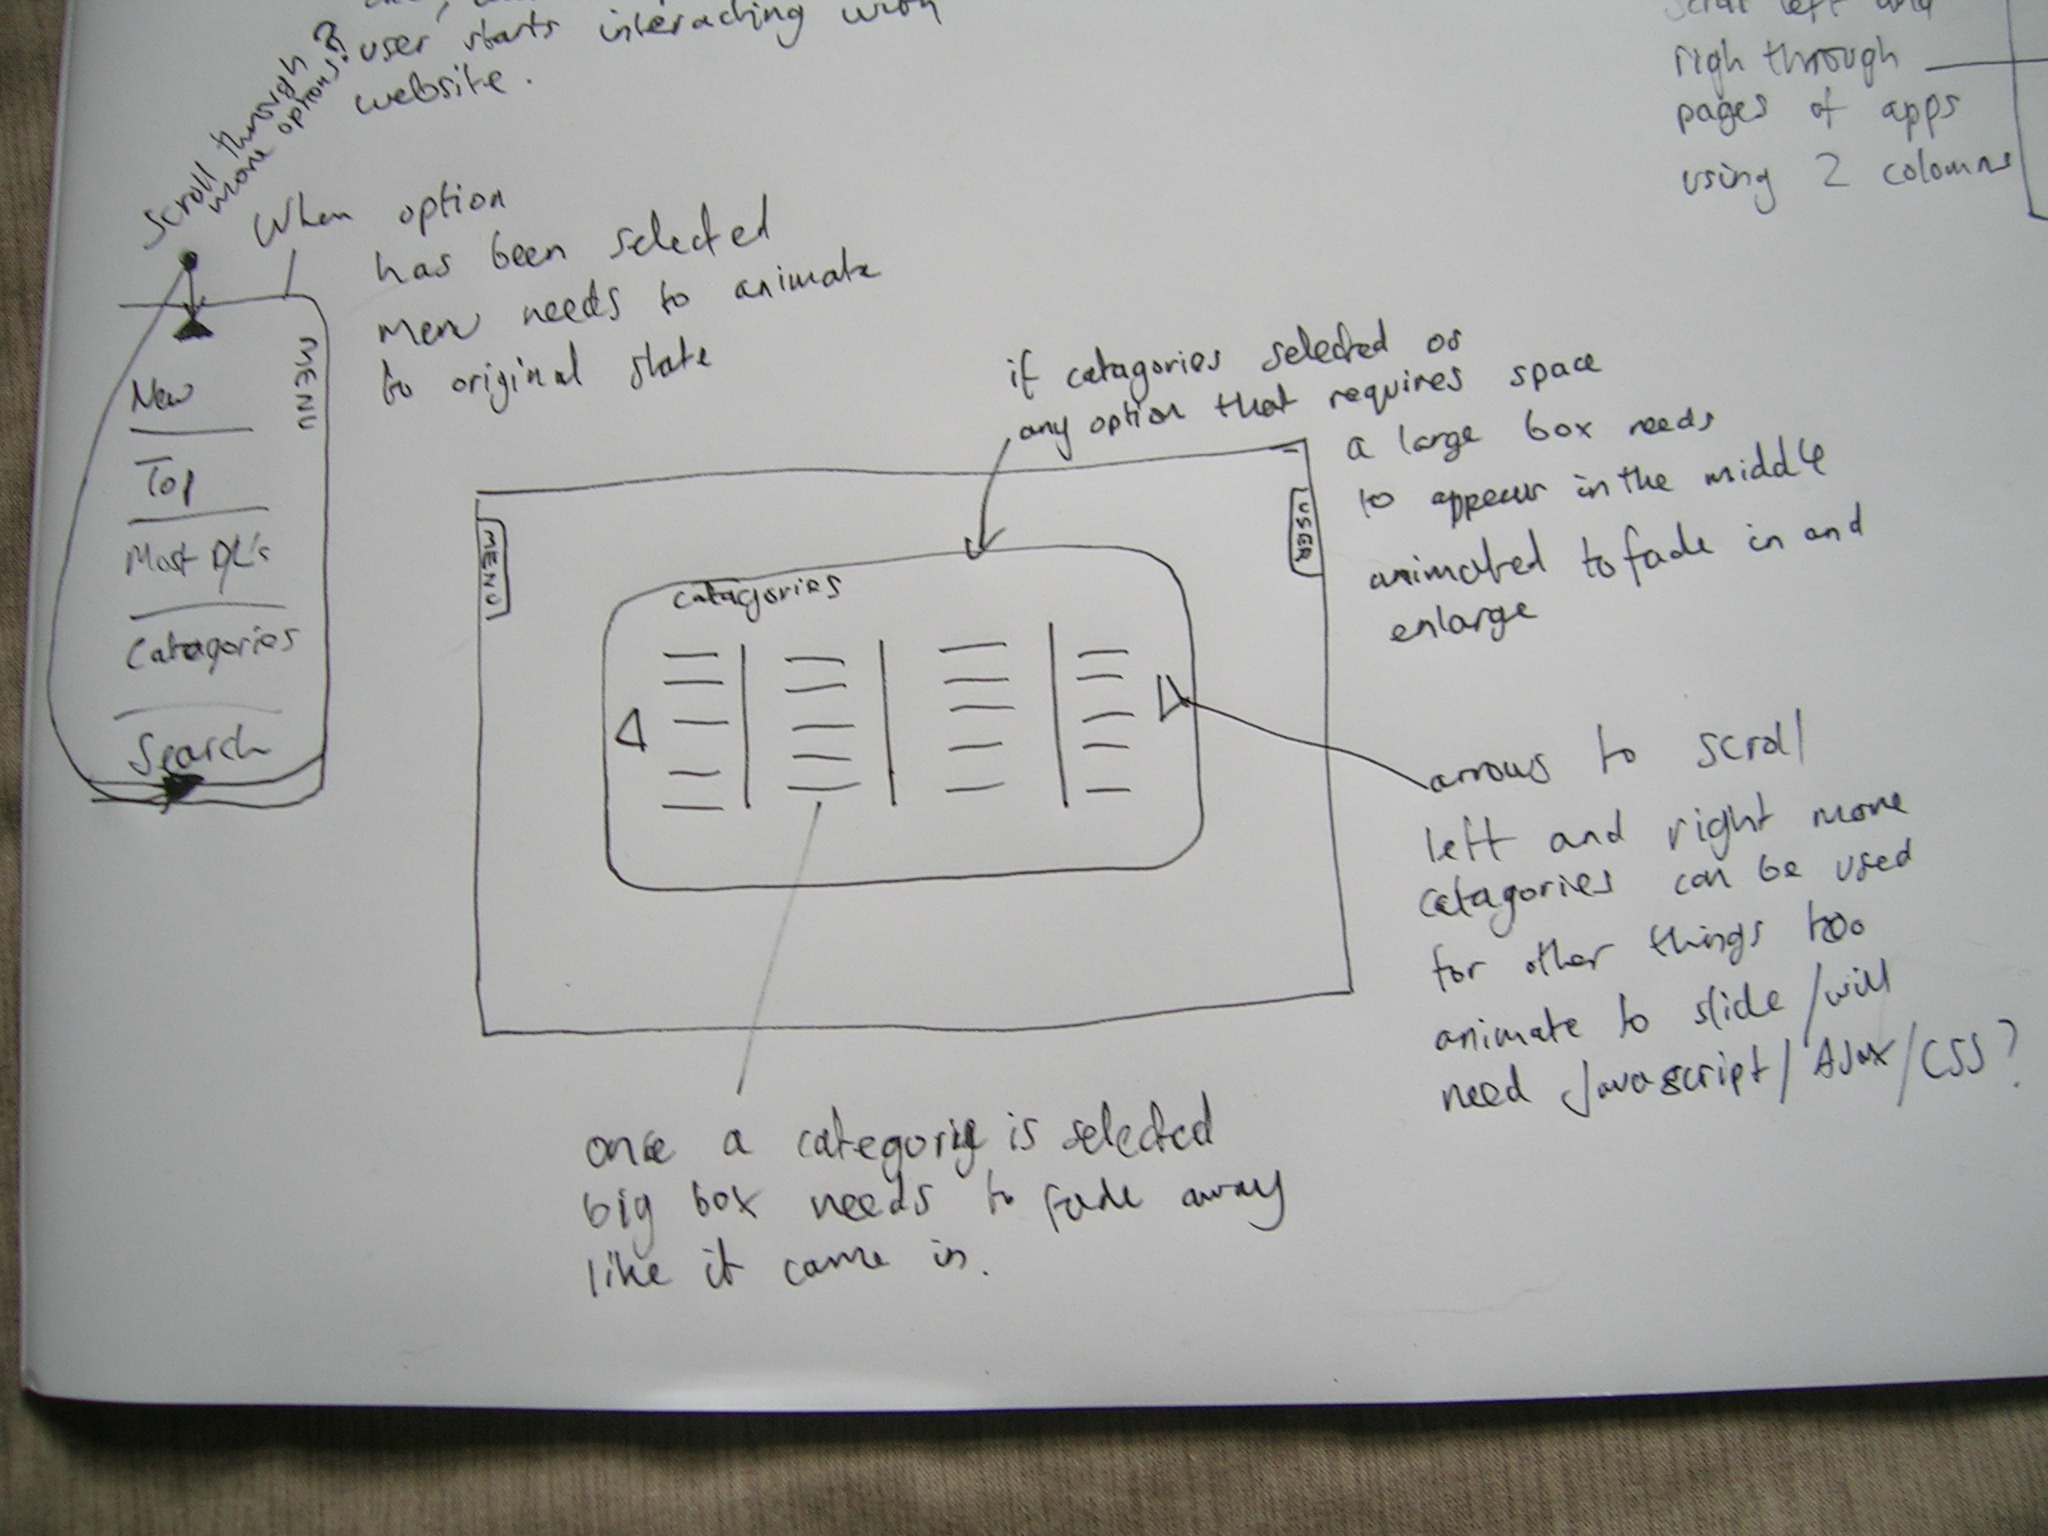 user starts interacting with
website.
Scroll through
more options?
When option
has been selected
menu needs to animate
to original state
MENU
New
Top
Most DL's
Catagories
Search
scroll left and
righ through
pages of apps
using 2 coloumns
if catagories selected or
any option that requires space
a large box needs
to appear in the middle
animated to fade in and
enlarge
MENU
USER
catagories
arrows to scroll
left and right more
catagories can be used
for other things too
animate to slide / will
need Javascript / AJax / CSS?
once a category is selected
big box needs to fade away
like it came in.